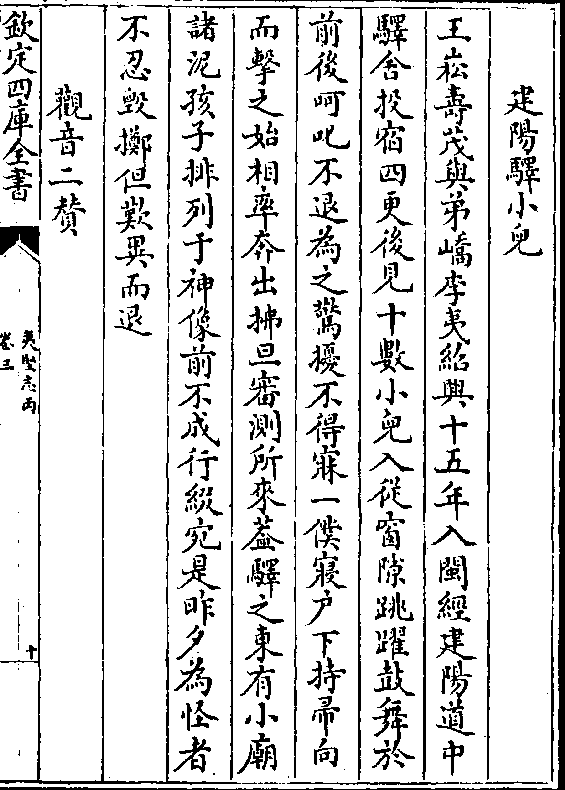 建陽驛小兒
王崧壽茂與弟嶠李夷紹興十五年入閩經建陽道中
驛舍投宿四更後見十數小兒入從窗隙跳躍鼓舞於
前後呵叱不退為之驚擾不得寐一僕寢户下持帚向
而擊之始相率奔出拂旦審測所來葢驛之東有小廟
諸泥孩子排列于神像前不成行綴宛是昨夕為怪者
不忍毀擲但歎異而退
觀音二贊
欽定四庫全書
夷堅志丙
卷五
十